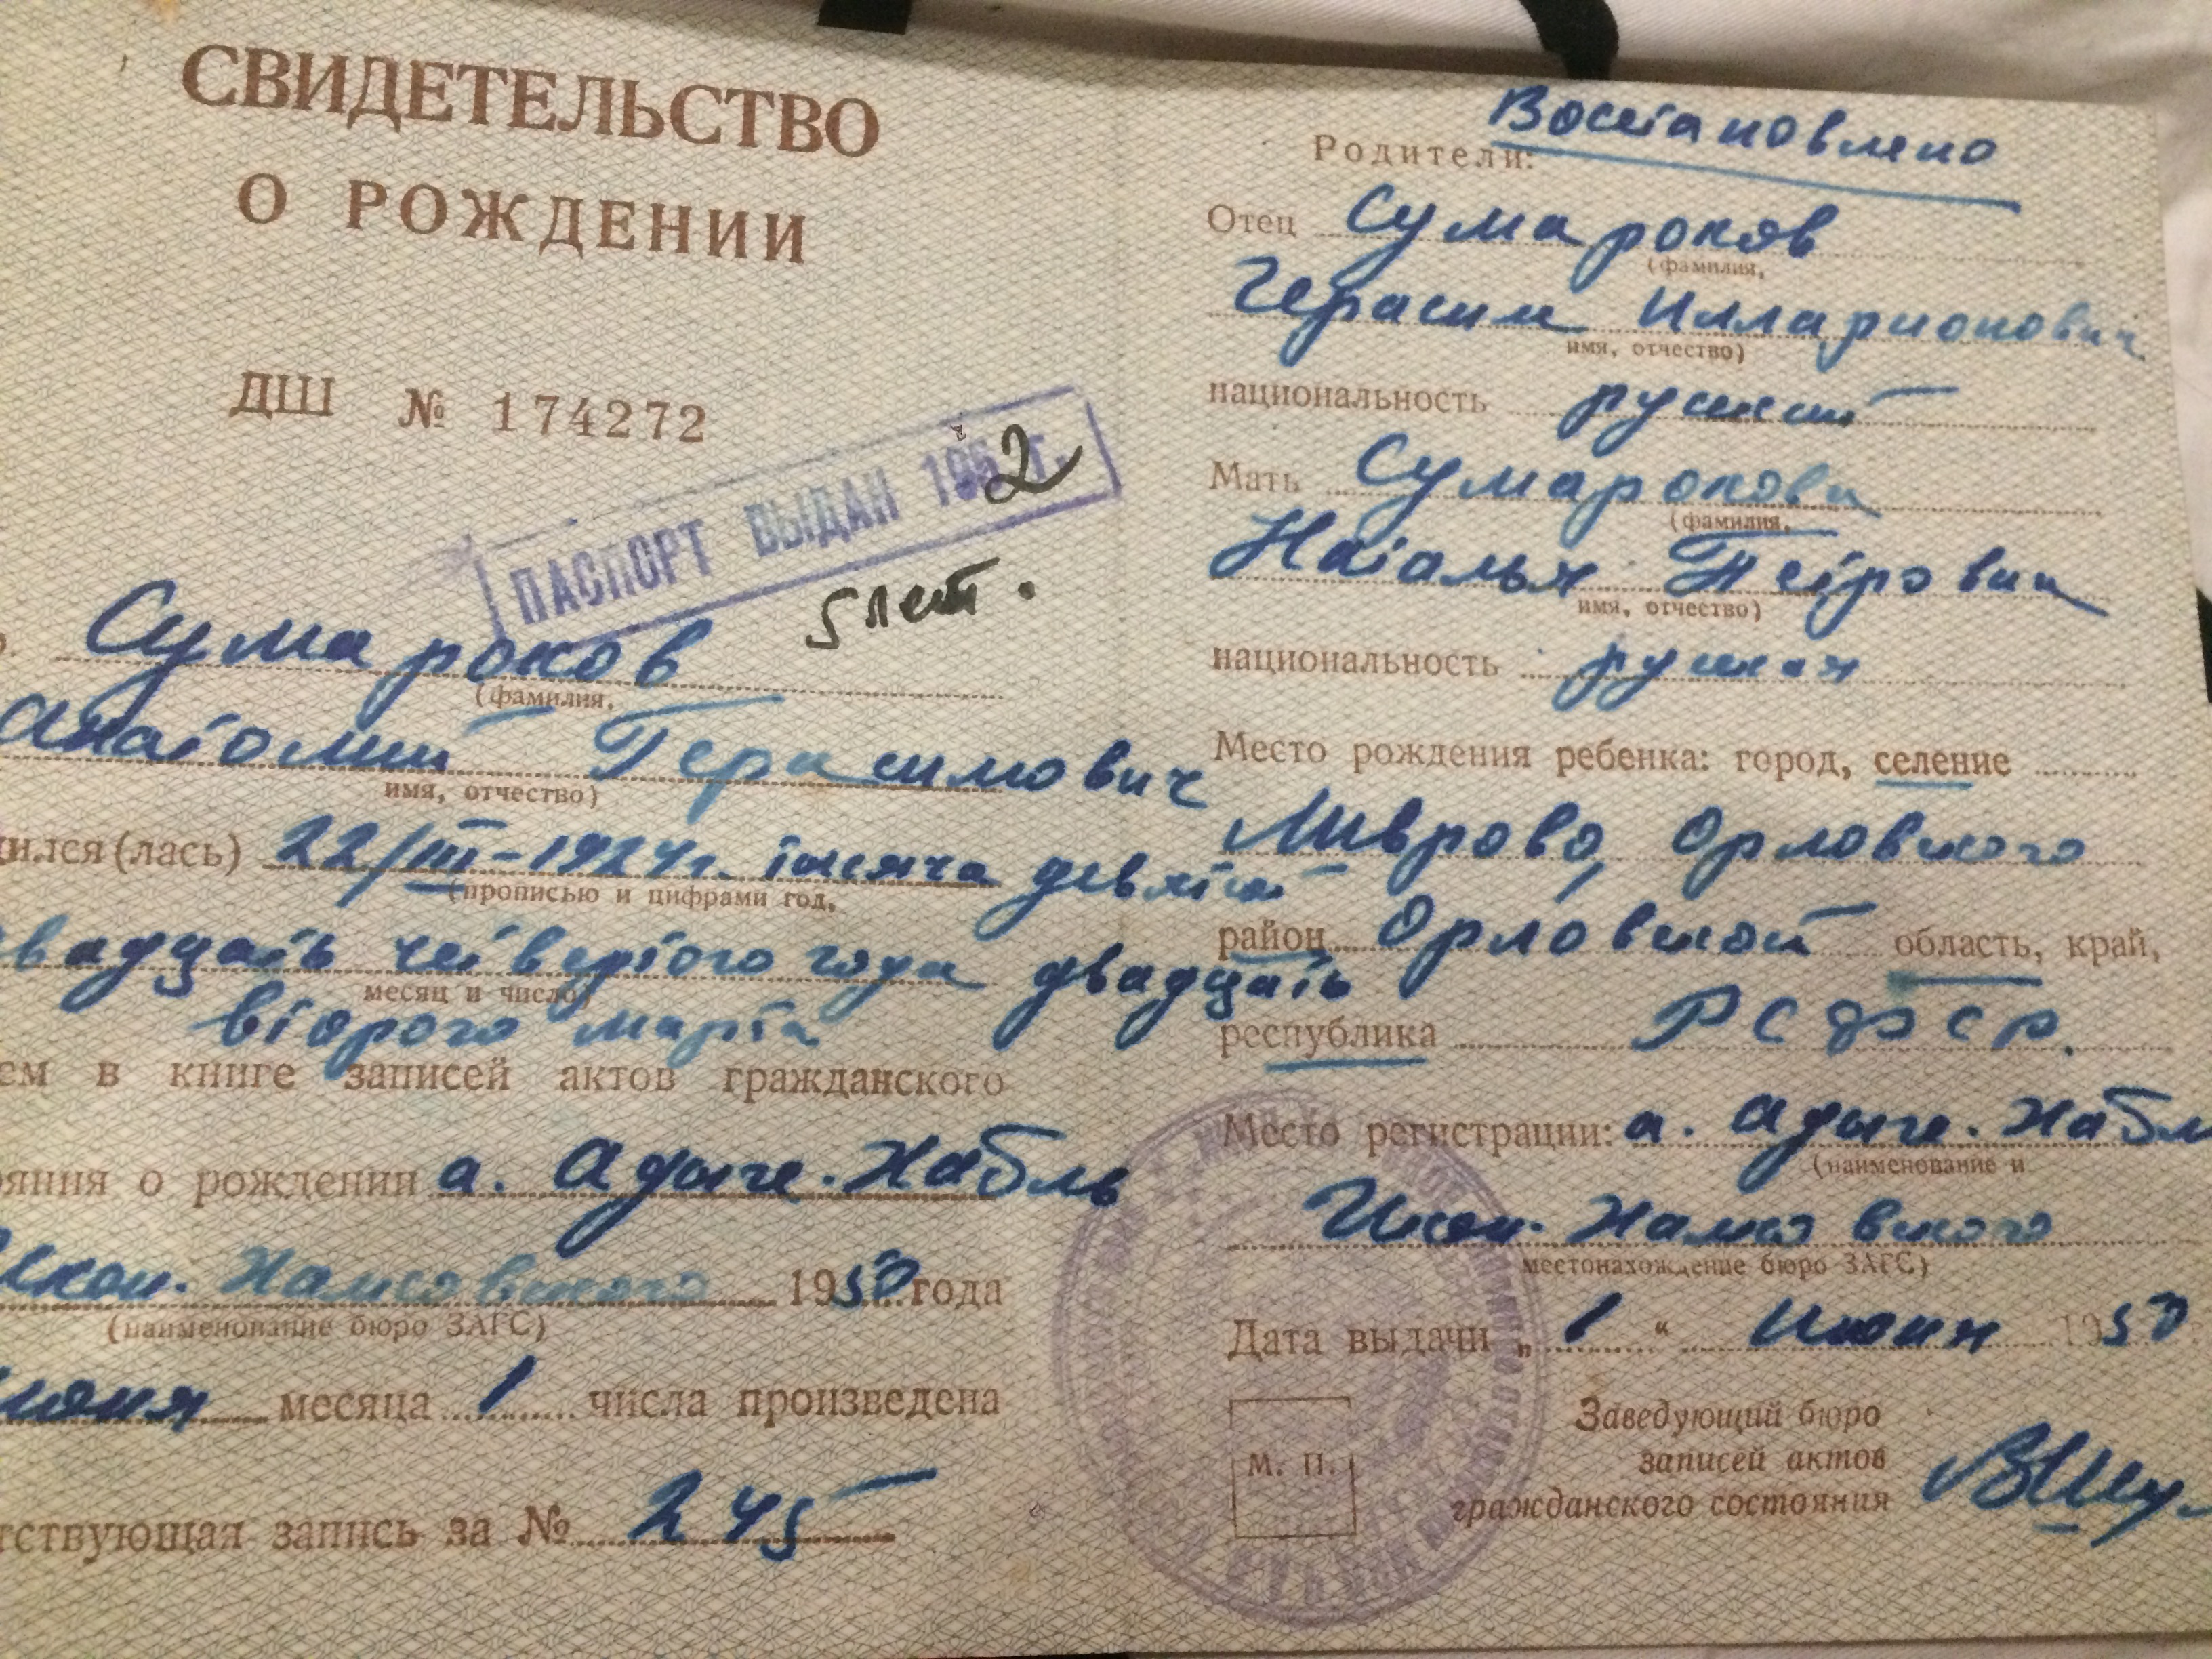 СВИДЕТЕЛЬСТВО
О РОЖДЕНИИ
ДШ № 174272
ПАСПОРТ ВЫДАН 1952 г.
5 лет.
Сумароков
(фамилия,
Анатолий Герасимович
имя, отчество)
дился (лась) 22/III-1924 г. тысяча девятьсот
(прописью и цифрами год,
двадцать четвертого года двадцать
месяц и число)
второго марта
ем в книге записей актов гражданского
ояния о рождении а. Адыге-Хабль
Икон-Халковского 1950 года
(наименование бюро ЗАГС)
июня месяца 1 числа произведена
тствующая запись за № 245
Востановлено
Родители:
Отец Сумароков
(фамилия,
Герасим Илларионович
имя, отчество)
национальность русский
Мать Сумарокова
(фамилия,
Наталья Петровна
имя, отчество)
национальность русская
Место рождения ребенка: город, селение
Орловского
район Орловской область, край,
республика РСФСР.
Место регистрации: а. Адыге-Хабль
(наименование и
Икон-Халковского
местонахождение бюро ЗАГС)
Дата выдачи „1“ Июня 1950
М. П.
Заведующий бюро
записей актов
гражданского состояния